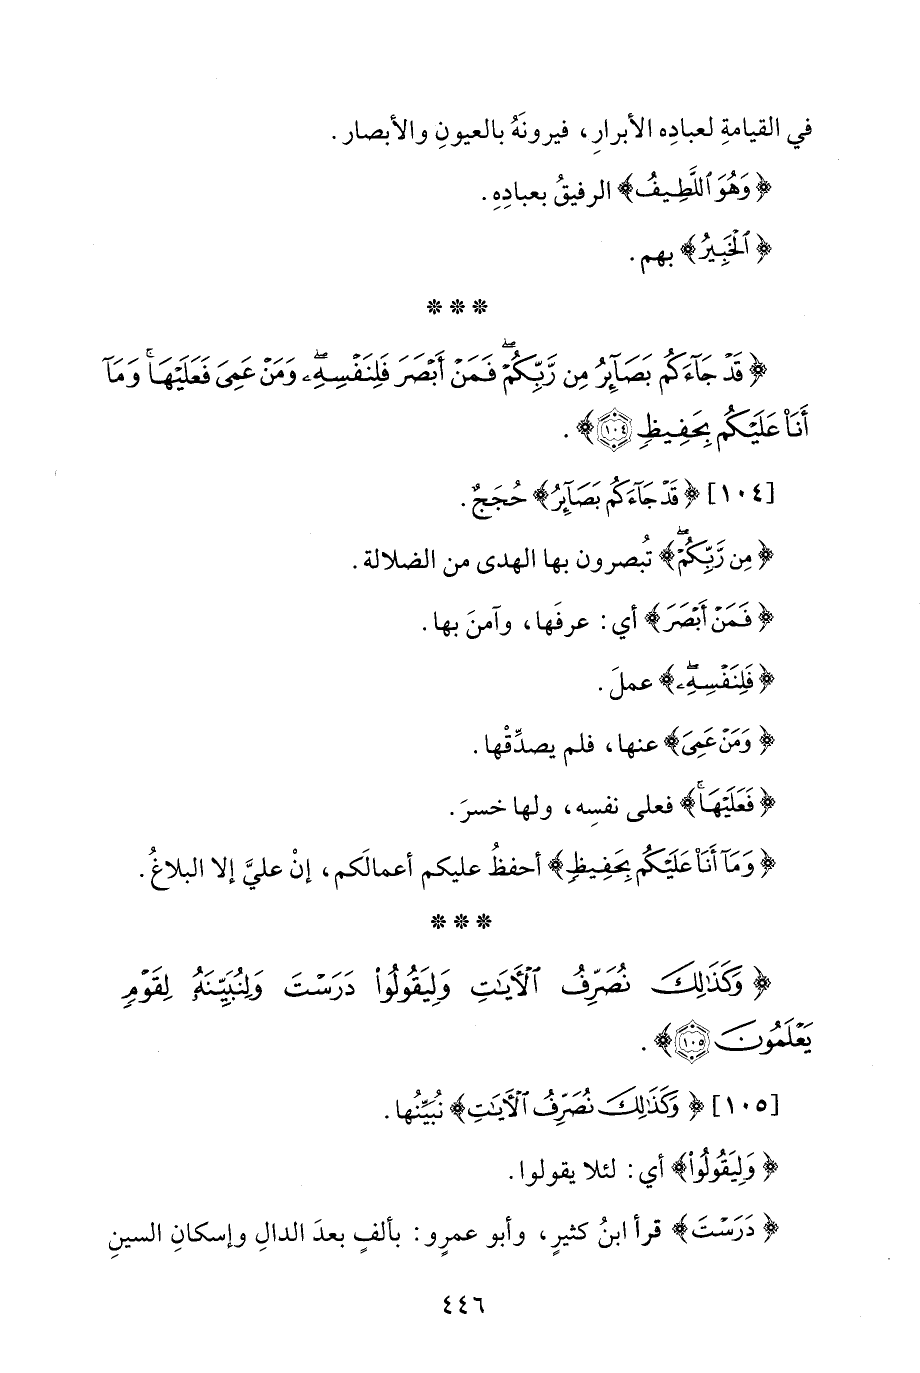 في القيامةِ لعبادِه الأبرارِ، فيرونَهُ بالعيونِ والأبصار.
﴿وَهُوَ ٱللَّطِيفُ﴾ الرفيقُ بعبادِهِ.
﴿ٱلْخَبِيرُ﴾ بهم.
* * *
﴿قَدْ جَآءَكُم بَصَآئِرُ مِن رَّبِّكُمْۖ فَمَنْ أَبْصَرَ فَلِنَفْسِهِۦۖ وَمَنْ عَمِىَ فَعَلَيْهَاۚ وَمَآ
أَنَا۠ عَلَيْكُم بِحَفِيظٍ ١٠٤﴾.
[١٠٤] ﴿قَدْ جَآءَكُم بَصَآئِرُ﴾ حُجَجٌ.
﴿مِن رَّبِّكُمْۖ﴾ تُبصرون بها الهدى من الضلالة.
﴿فَمَنْ أَبْصَرَ﴾ أي: عرفَها، وآمنَ بها.
﴿فَلِنَفْسِهِۦۖ﴾ عملَ.
﴿وَمَنْ عَمِىَ﴾ عنها، فلم يصدِّقْها.
﴿فَعَلَيْهَاۚ﴾ فعلى نفسِه، ولها خسرَ.
﴿وَمَآ أَنَا۠ عَلَيْكُم بِحَفِيظٍ﴾ أحفظُ عليكم أعمالَكم، إنْ عليَّ إلا البلاغُ.
* * *
﴿وَكَذَٰلِكَ نُصَرِّفُ ٱلْءَايَٰتِ وَلِيَقُولُوا۟ دَرَسْتَ وَلِنُبَيِّنَهُۥ لِقَوْمٍ
يَعْلَمُونَ ١٠٥﴾.
[١٠٥] ﴿وَكَذَٰلِكَ نُصَرِّفُ ٱلْءَايَٰتِ﴾ نُبيِّنُها.
﴿وَلِيَقُولُوا۟﴾ أي: لئلا يقولوا.
﴿دَرَسْتَ﴾ قرأ ابنُ كثيرٍ، وأبو عمرٍو: بألفٍ بعدَ الدالِ وإسكانِ السينِ
٤٤٦